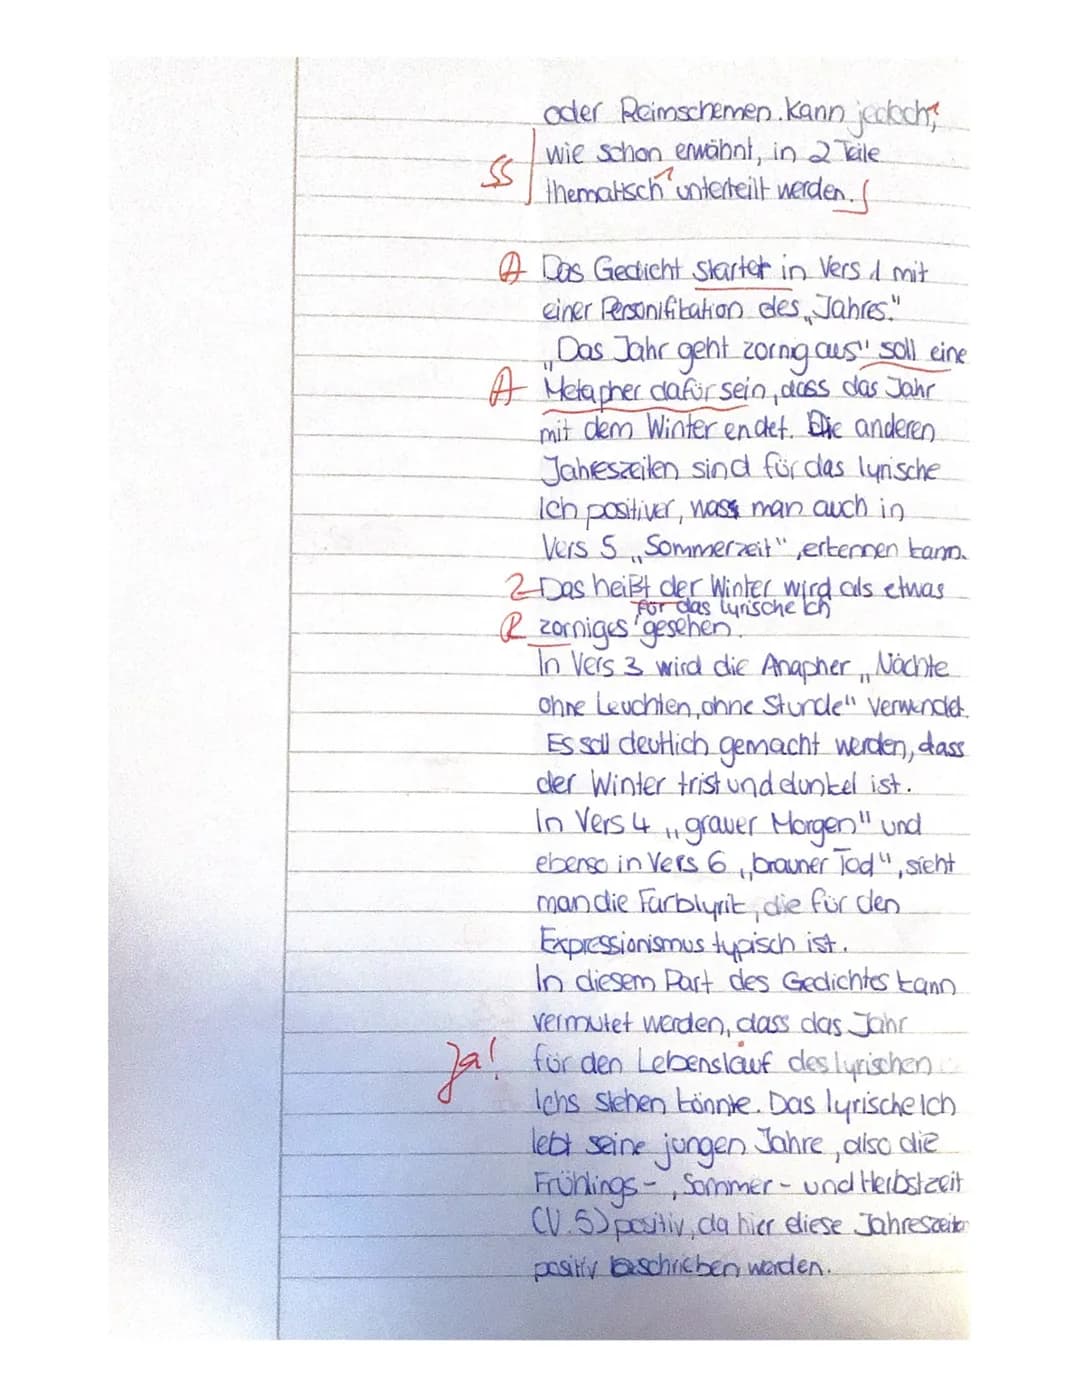 oder Reimschemen. Kann jedoch,
wie schon erwähnt, in 2 Teile
SS
thematisch unterteilt werden.
A Das Gedicht startet in Vers 1 mit
einer Personifikation des „Jahres."
„Das Jahr geht zornig aus" soll eine
A Metapher dafür sein, dass das Jahr
mit dem Winter endet. Die anderen
Jahreszeiten sind für das lyrische
Ich positiver, was man auch in
Vers 5 „Sommerzeit", erkennen kann.
Z Das heißt der Winter wird als etwas
für das lyrische Ich
R zorniges gesehen.
In Vers 3 wird die Anapher „Nächte
ohne Leuchten, ohne Stunde" verwendet.
Es soll deutlich gemacht werden, dass
der Winter trist und dunkel ist.
In Vers 4 „grauer Morgen" und
ebenso in Vers 6 „brauner Tod", sieht
man die Farblyrik, die für den
Expressionismus typisch ist.
In diesem Part des Gedichtes kann
vermutet werden, dass das Jahr
Ja! für den Lebenslauf des lyrischen
Ichs stehen könnte. Das lyrische Ich
lebt seine jungen Jahre, also die
Frühlings-, Sommer- und Herbstzeit
(V. 5) positiv, da hier diese Jahreszeiten
positiv beschrieben werden.